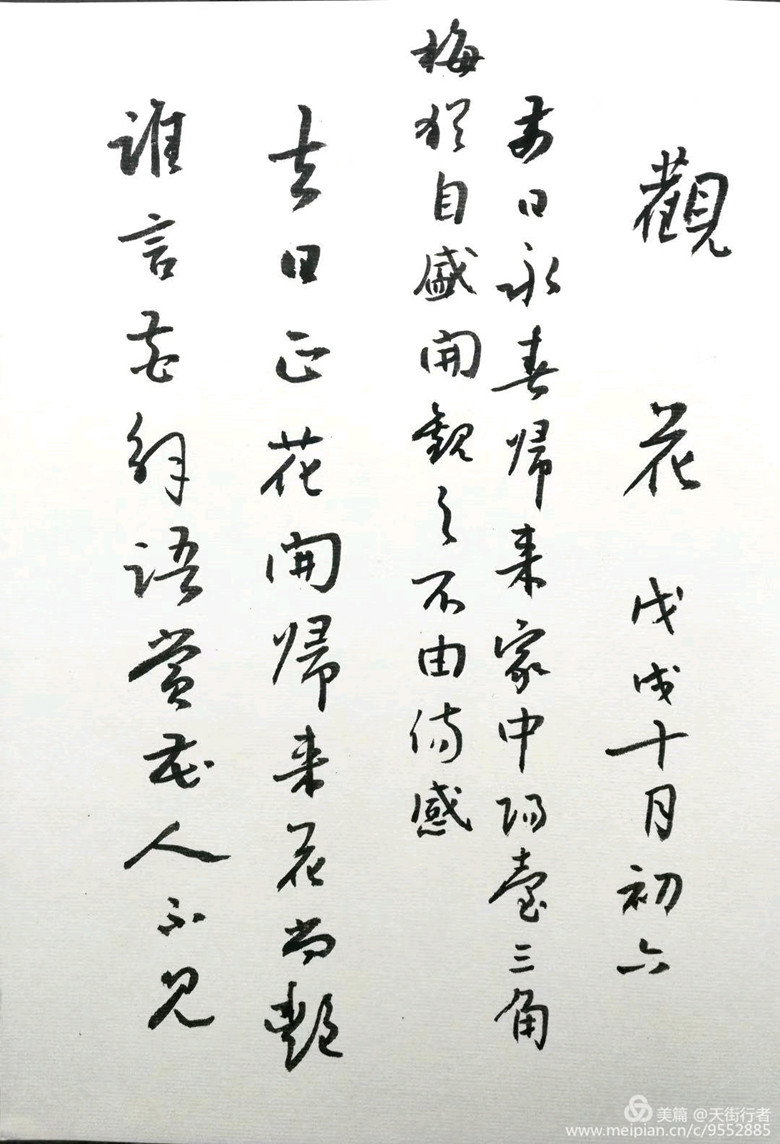 觀花 戊戌十月初六
前日永春歸来家中阳臺三角
梅猶自盛開觀之不由傷感
去日正花開歸来花尚艷
誰言花解語賞花人不見
美篇 @天街行者
www.meipian.cn/c/9552885